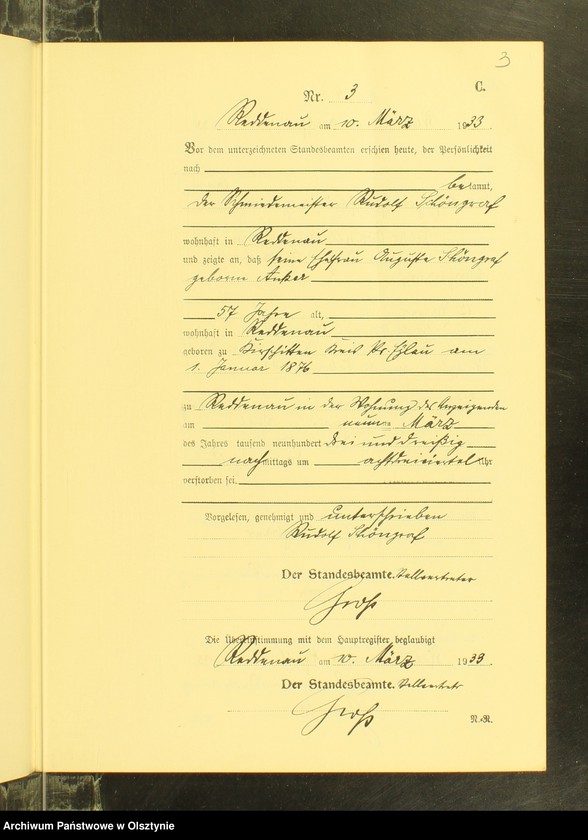 3
C.
Nr. 3
Reddenau am 10. März 1933
Vor dem unterzeichneten Standesbeamten erschien heute, der Persönlichkeit
nach
bekannt,
der Schmiedemeister Rudolf Schöngraf
wohnhaft in Reddenau
und zeigte an, daß seine Ehefrau Auguste Schöngraf
geborne
57 Jahre alt,
wohnhaft in Reddenau
geboren zu Hirschitten Kreis Pr. Eylau am
1. Januar 1876
zu Reddenau in der Wohnung des Anzeigenden
am neunten März
des Jahres tausend neunhundert drei und dreißig
nachmittags um achtdreiviertel Uhr
verstorben sei.
Vorgelesen, genehmigt und unterschrieben
Rudolf Schöngraf
Der Standesbeamte. Stellvertreter
Groß
Die Übereinstimmung mit dem Hauptregister beglaubigt
Reddenau am 10. März 1933
Der Standesbeamte. Stellvertreter
Groß
N.-R.
Archiwum Państwowe w Olsztynie